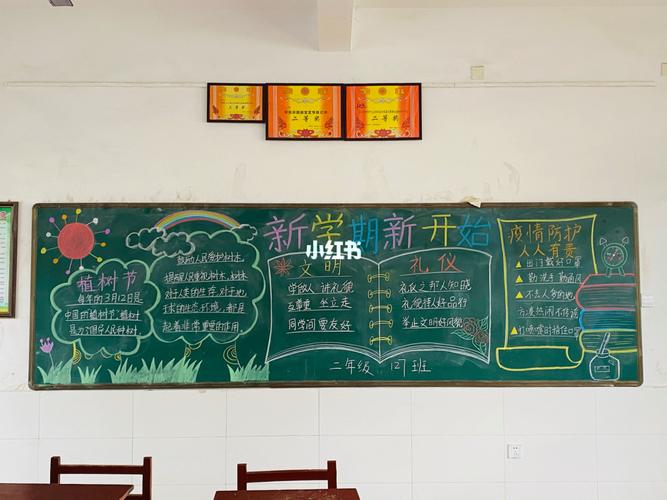 二等奖
二等奖
二等奖
新学期新开始
小红书
植树节
每年的3月12日是
中国的植树节，植树
是为了倡导人民种树，
鼓励人民爱护树木，
提醒人民重视树木，树木
对于人类的生存，对于地
球的生态环境，都是
起着非常重要的作用。
文明
学做人 讲礼貌
互尊重 坐立走
同学间 要友好
礼仪
礼仪之邦人知晓
礼貌待人好品行
举止文明好风貌
二年级（2）班
疫情防护
人人有责
出门戴好口罩
勤洗手 勤通风
不去人多的地
方凑热闹不传谣
打喷嚏时捂住口鼻